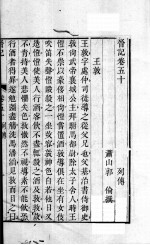 晉記卷五十 列傳
蕭山郭倫撰
王敦
王敦字處仲司徒導之從父兄也父基治書侍御史
敦尚武帝女襄城公主拜駙馬都尉除太子舍人時王
愷石崇以豪侈相尚愷嘗置酒敦導俱在坐有女伎
吹笛小失聲韻愷毆之一坐改容敦神色自若他日又
愷使美人行酒客飲不盡輒殺之酒及敦敦故
不肯持美人悲懼失色而敦傲然不視導素不能飲恐
行酒者得罪遂勉強盡觴洗馬潘滔見敦而目之